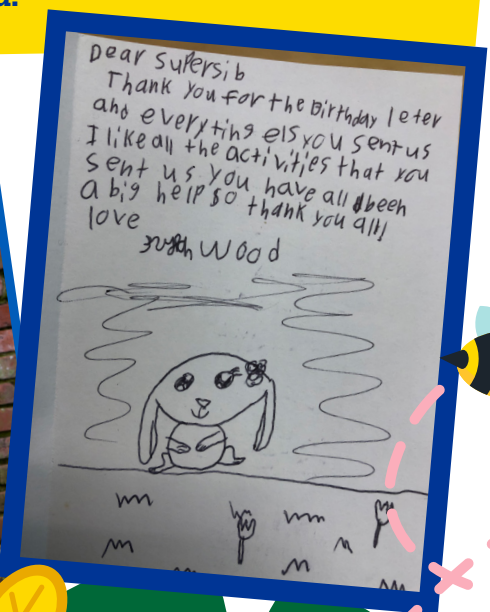 Dear Supersib
Thank you for the Birthday leter
and everyting els you sent us
I like all the activities that you
sent us you have all been
a big help so thank you all!
love
Wood